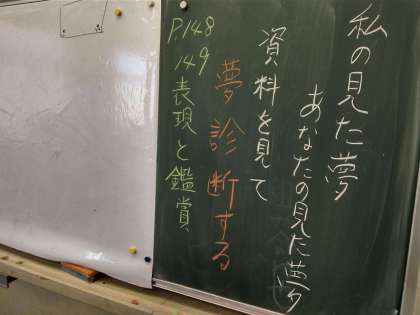 私の見た夢
あなたの見た夢
資料を見て
夢診断する
P.148
149
表現と鑑賞